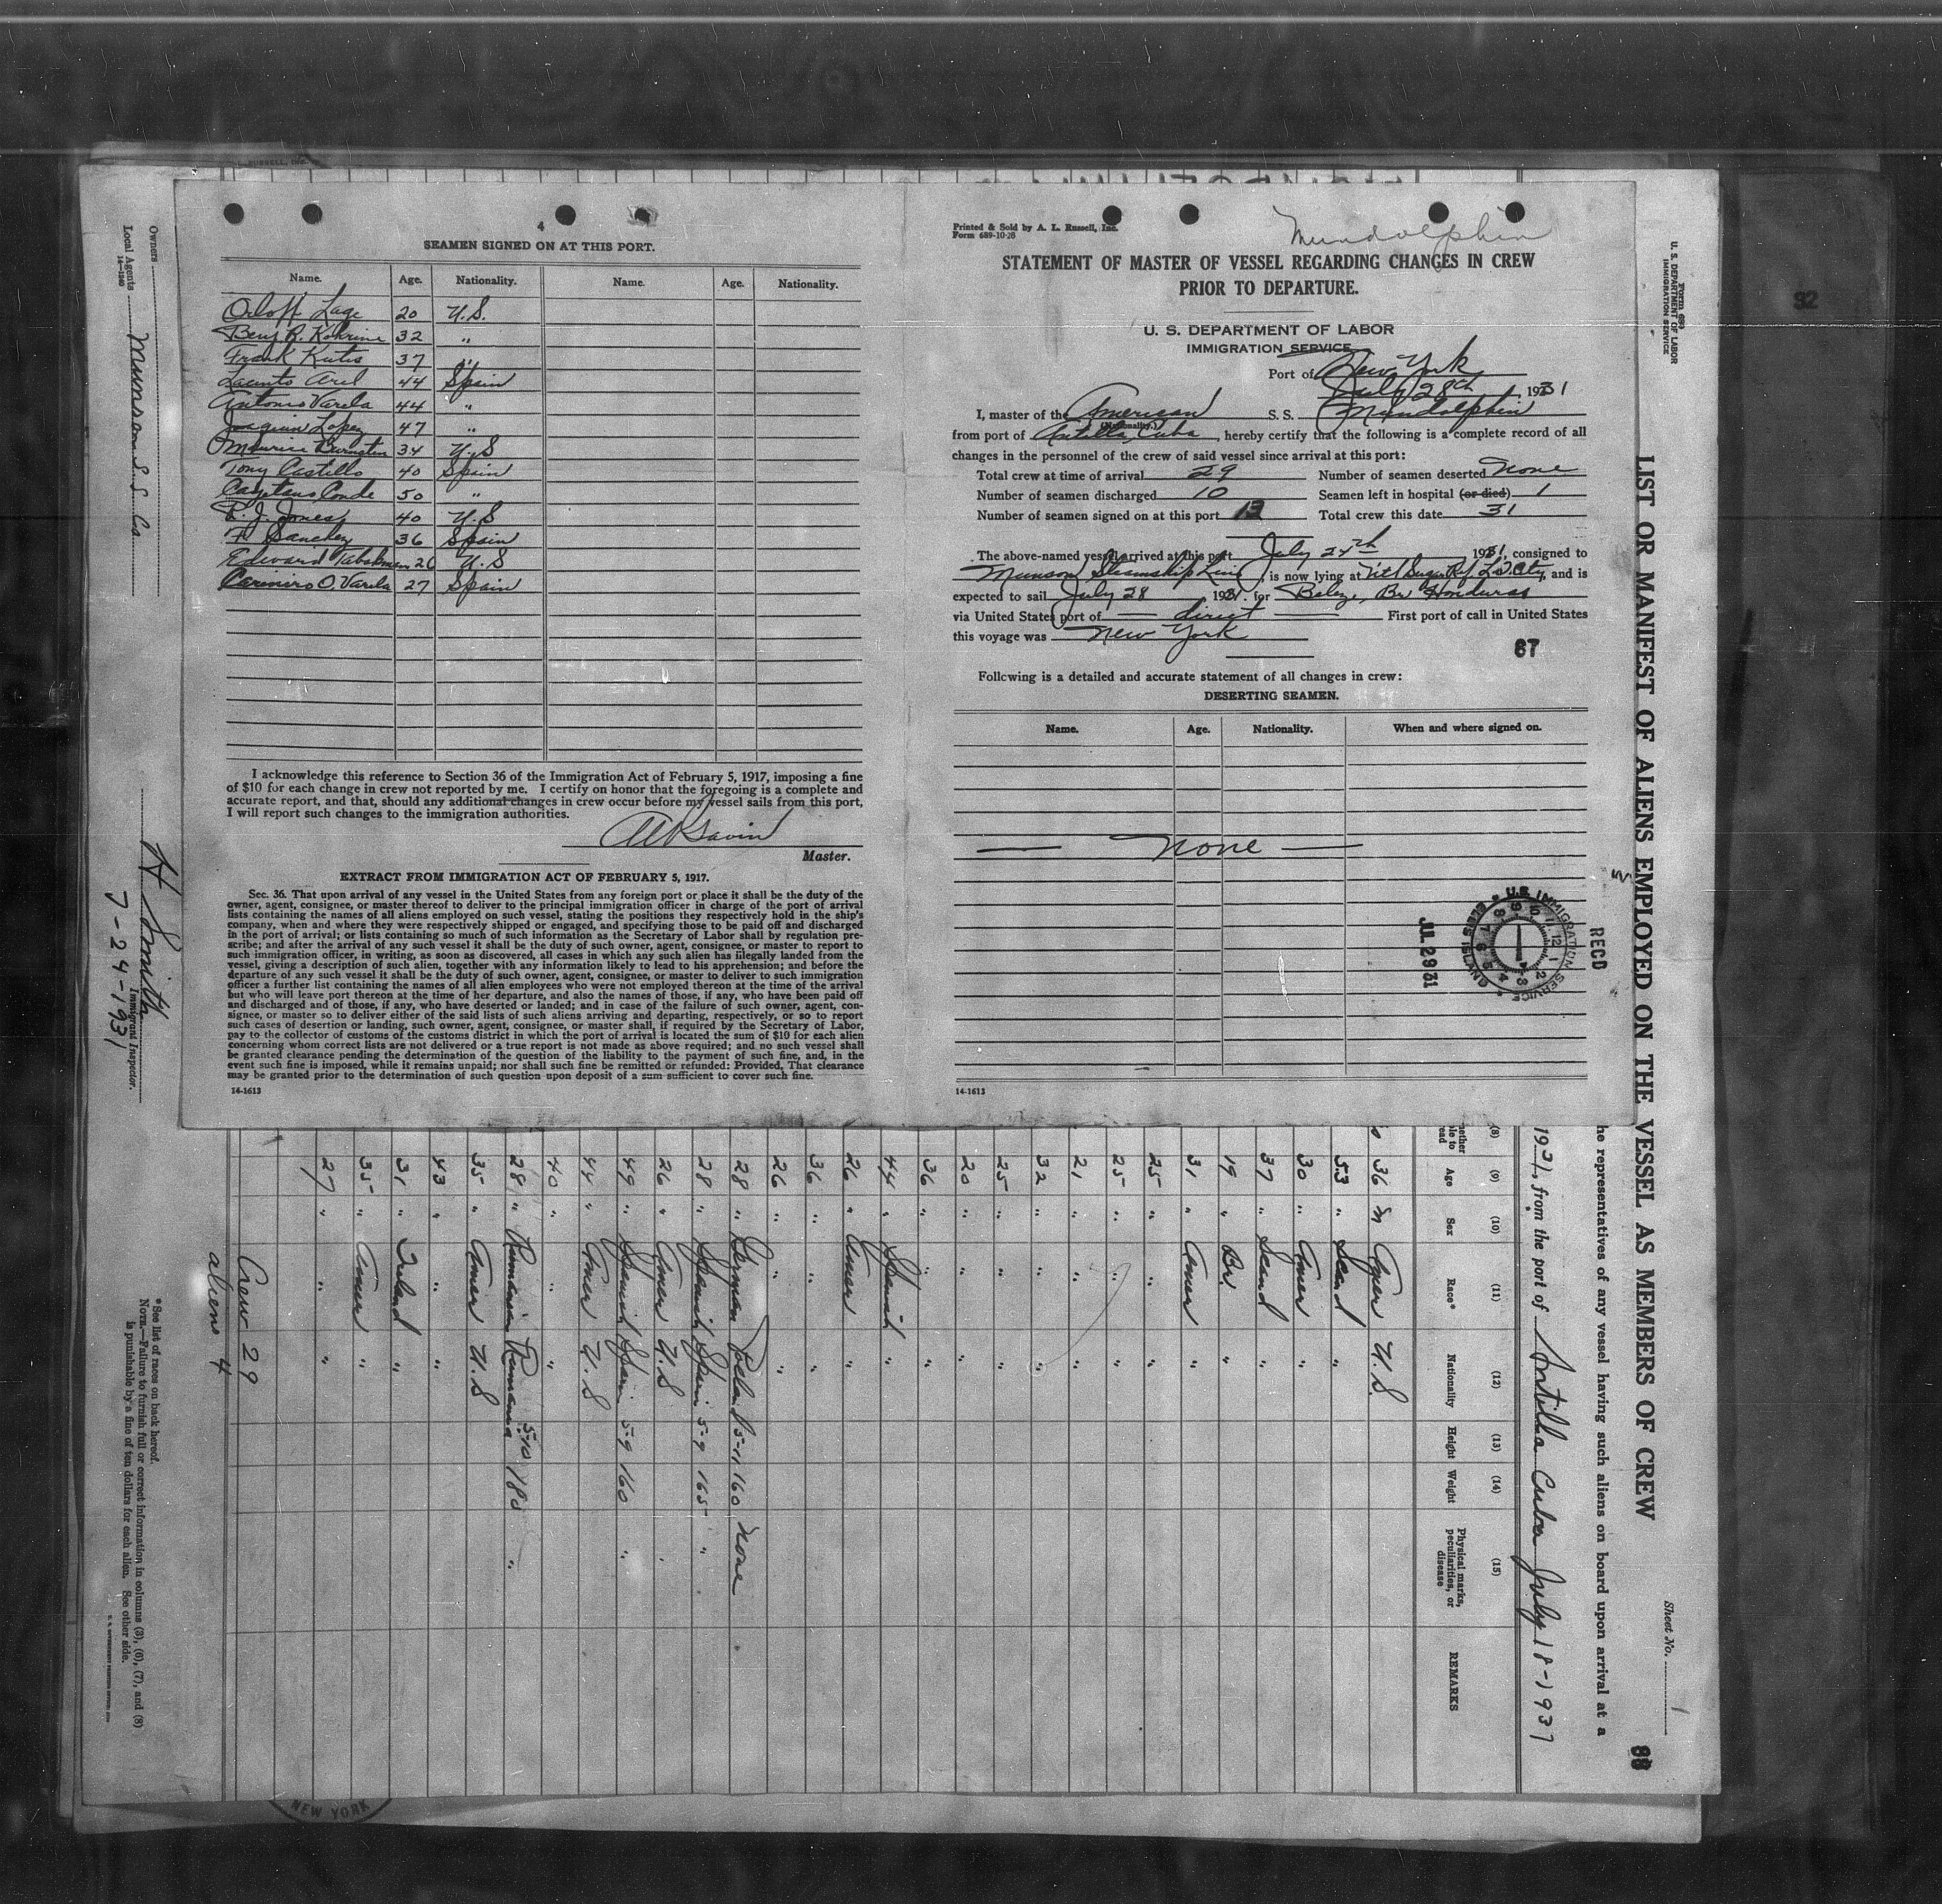 4
SEAMEN SIGNED ON AT THIS PORT.
Name. Age. Nationality. Name. Age. Nationality.
Orloff Lage 20 U.S.
Benj R. 32 "
Frank Kutis 37 "
Jacinto 44 Spain
Antonio Varela 44 "
Joaquin Lopez 47 "
Maurice 34 U.S
Tony Castillo 40 Spain
Cayetano Conde 50 "
R. J. Jones 40 U.S
F. Sanchez 36 Spain
Edward 26 U.S
O. Varela 27 Spain
I acknowledge this reference to Section 36 of the Immigration Act of February 5, 1917, imposing a fine
of $10 for each change in crew not reported by me. I certify on honor that the foregoing is a complete and
accurate report, and that, should any additional changes in crew occur before my vessel sails from this port,
I will report such changes to the immigration authorities.
Master.
EXTRACT FROM IMMIGRATION ACT OF FEBRUARY 5, 1917.
Sec. 36. That upon arrival of any vessel in the United States from any foreign port or place it shall be the duty of the
owner, agent, consignee, or master thereof to deliver to the principal immigration officer in charge of the port of arrival
lists containing the names of all aliens employed on such vessel, stating the positions they respectively hold in the ship's
company, when and where they were respectively shipped or engaged, and specifying those to be paid off and discharged
in the port of arrival; or lists containing so much of such information as the Secretary of Labor shall by regulation pre-
scribe; and after the arrival of any such vessel it shall be the duty of such owner, agent, consignee, or master to report to
such immigration officer, in writing, as soon as discovered, all cases in which any such alien has illegally landed from the
vessel, giving a description of such alien, together with any information likely to lead to his apprehension; and before the
departure of any such vessel it shall be the duty of such owner, agent, consignee, or master to deliver to such immigration
officer a further list containing the names of all alien employees who were not employed thereon at the time of the arrival
but who will leave port thereon at the time of her departure, and also the names of those, if any, who have been paid off
and discharged and of those, if any, who have deserted or landed; and in case of the failure of such owner, agent, con-
signee, or master so to deliver either of the said lists of such aliens arriving and departing, respectively, or so to report
such cases of desertion or landing, such owner, agent, consignee, or master shall, if required by the Secretary of Labor,
pay to the collector of customs of the customs district in which the port of arrival is located the sum of $10 for each alien
concerning whom correct lists are not delivered or a true report is not made as above required; and no such vessel shall
be granted clearance pending the determination of the question of the liability to the payment of such fine, and, in the
event such fine is imposed, while it remains unpaid; nor shall such fine be remitted or refunded: Provided, That clearance
may be granted prior to the determination of such question upon deposit of a sum sufficient to cover such fine.
14-1613
Printed & Sold by A. L. Russell, Inc.
Form 689-10-28
Mundolphin
STATEMENT OF MASTER OF VESSEL REGARDING CHANGES IN CREW
PRIOR TO DEPARTURE.
U. S. DEPARTMENT OF LABOR
IMMIGRATION SERVICE
Port of New York
July 28th, 1931
I, master of the American S. S. Mundolphin
(Nationality.)
from port of Antilla, Cuba, hereby certify that the following is a complete record of all
changes in the personnel of the crew of said vessel since arrival at this port:
Total crew at time of arrival 29 Number of seamen deserted None
Number of seamen discharged 10 Seamen left in hospital (or died) 1
Number of seamen signed on at this port 13 Total crew this date 31
The above-named vessel arrived at this port July 24th 1931, consigned to
Munson Steamship Line, is now lying at Ntl Sugar Ref L.I. City, and is
expected to sail July 28, 1931. for Belize, Br Honduras
via United States port of direct First port of call in United States
this voyage was New York
87
Following is a detailed and accurate statement of all changes in crew:
DESERTING SEAMEN.
Name. Age. Nationality. When and where signed on.
None
RECD
U.S. IMMIGRATION SERVICE ELLIS ISLAND
JUL 29 31
14-1613
Form 689
U. S. DEPARTMENT OF LABOR
IMMIGRATION SERVICE
Sheet No. 1
88
LIST OR MANIFEST OF ALIENS EMPLOYED ON THE VESSEL AS MEMBERS OF CREW
he representatives of any vessel having such aliens on board upon arrival at a
1931, from the port of Antilla Cuba July 18-1931
(8) (9) (10) (11) (12) (13) (14) (15)
Age Sex Race* Nationality Height Weight Physical marks, peculiarities, or disease REMARKS
36 m Amer U.S.
53 " Scand "
30 " Amer "
37 " Scand "
19 " Br "
31 " Amer "
25 " " "
25 " " "
21 " " "
32 " " "
25 " " "
20 " " "
36 " " "
44 " Spanish "
26 " Amer "
36 " " "
26 " " "
28 " German Poland 5-11 160 None
28 " Spanish Spain 5-9 165 "
26 " Amer U.S
49 " Spanish Spain 5-9 160 "
44 " Amer U.S
40 " " "
28 " Rumanian Rumania 5-10 180 "
35 " Amer U.S
43 " " "
31 " Ireland "
35 " Amer "
27 " " "
Crew 29
aliens 4
*See list of races on back hereof.
NOTE.—Failure to furnish full or correct information in columns (3), (6), (7), and (8)
is punishable by a fine of ten dollars for each alien. See other side.
Owners
Local Agents Munson S.S. Co
14-1240
H Smith
Immigrant Inspector.
7-24-1931
NEW YORK
92